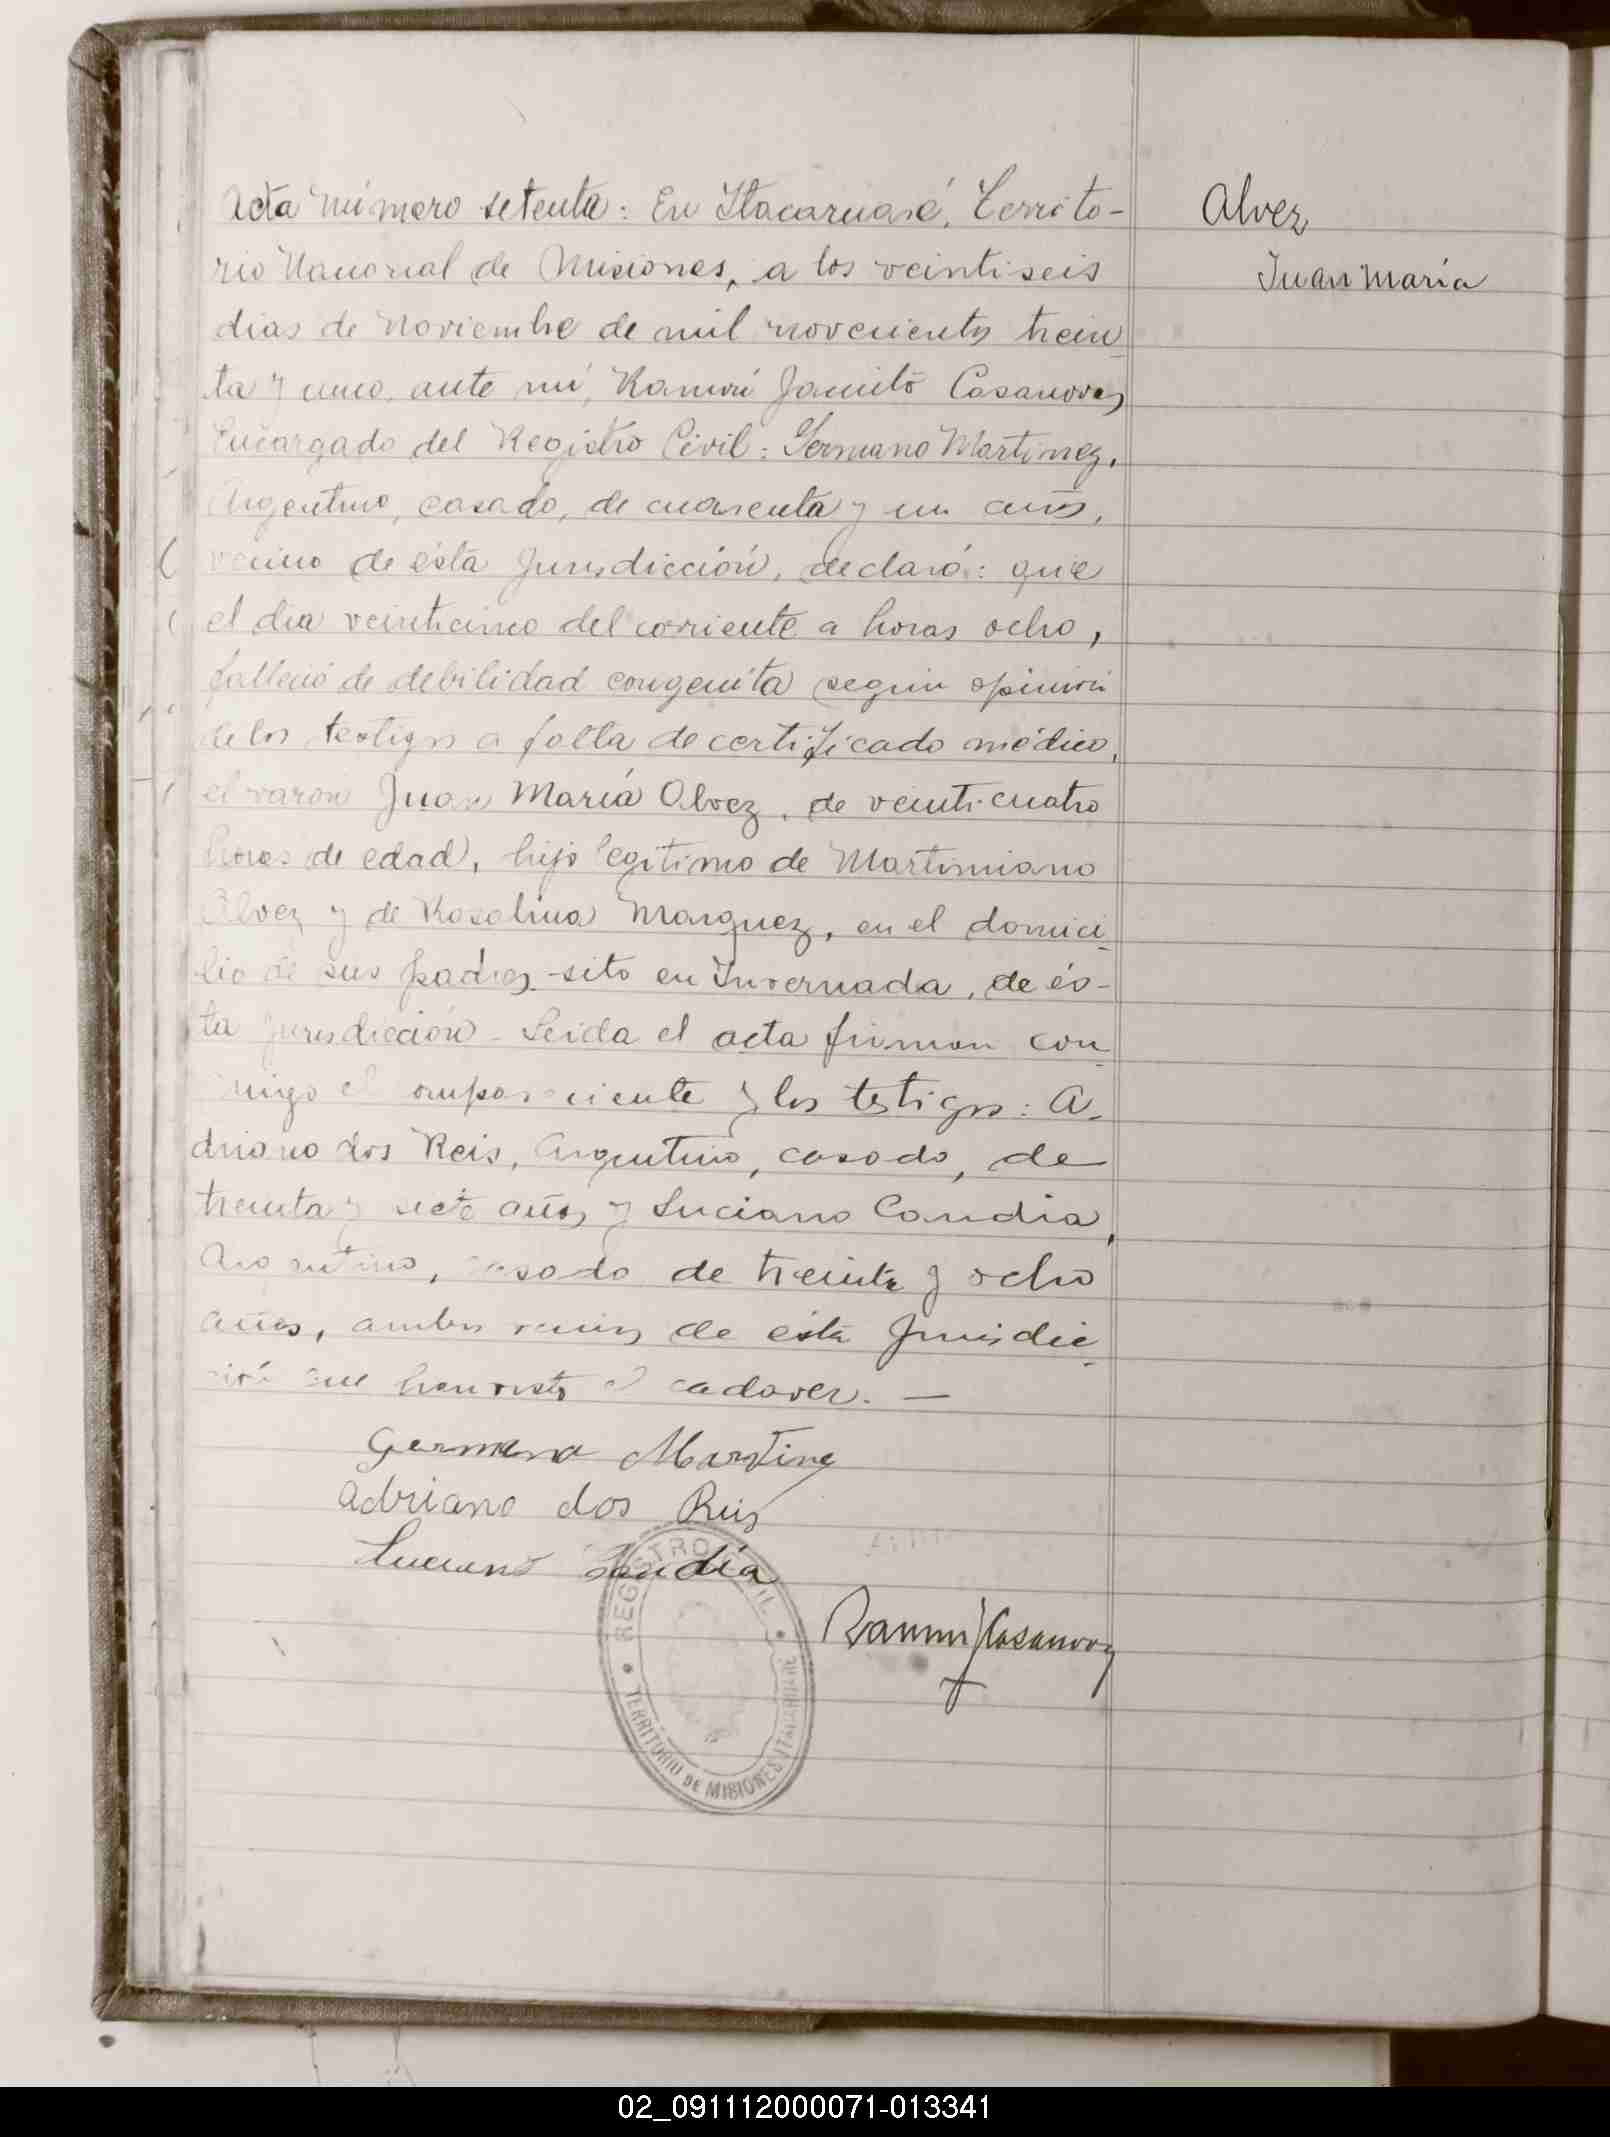 Acta número setenta: En Itacaruaré, Territo-
rio Nacional de Misiones, a los veintiseis
dias de Noviembre de mil novecientos trein_
ta y uno, ante mí, Ramón Jacinto Casanova,
Encargado del Registro Civil: Germano Martinez,
Argentino, casado, de cuarenta y un años,
vecino de ésta Jurisdicción, declaró: que
el dia veinticinco del corriente a horas ocho,
falleció de debilidad congenita según opinión
de los testigos a falta de certificado médico,
el varon Juan María Alvez, de veinticuatro
horas de edad, hijo legitimo de Martimiano
Alvez y de Rosalina Marquez, en el domici_
lio de sus padres sito en Invernada, de és-
ta jurisdicción - Leida el acta firman con_
migo el compareciente y los testigos: A_
driano dos Reis, Argentino, casado, de
treinta y siete años y Luciano Candia,
Argentino, casado de treinta y ocho
años, ambos vecinos de ésta Jurisdic_
ción que han visto el cadaver. —
Germano Martinez
Adriano dos Reis
Luciano Candia
Ramón J Casanova
REGISTRO CIVIL
TERRITORIO DE MISIONES ITACARUARE
Alvez
Juan María
02_091112000071-013341